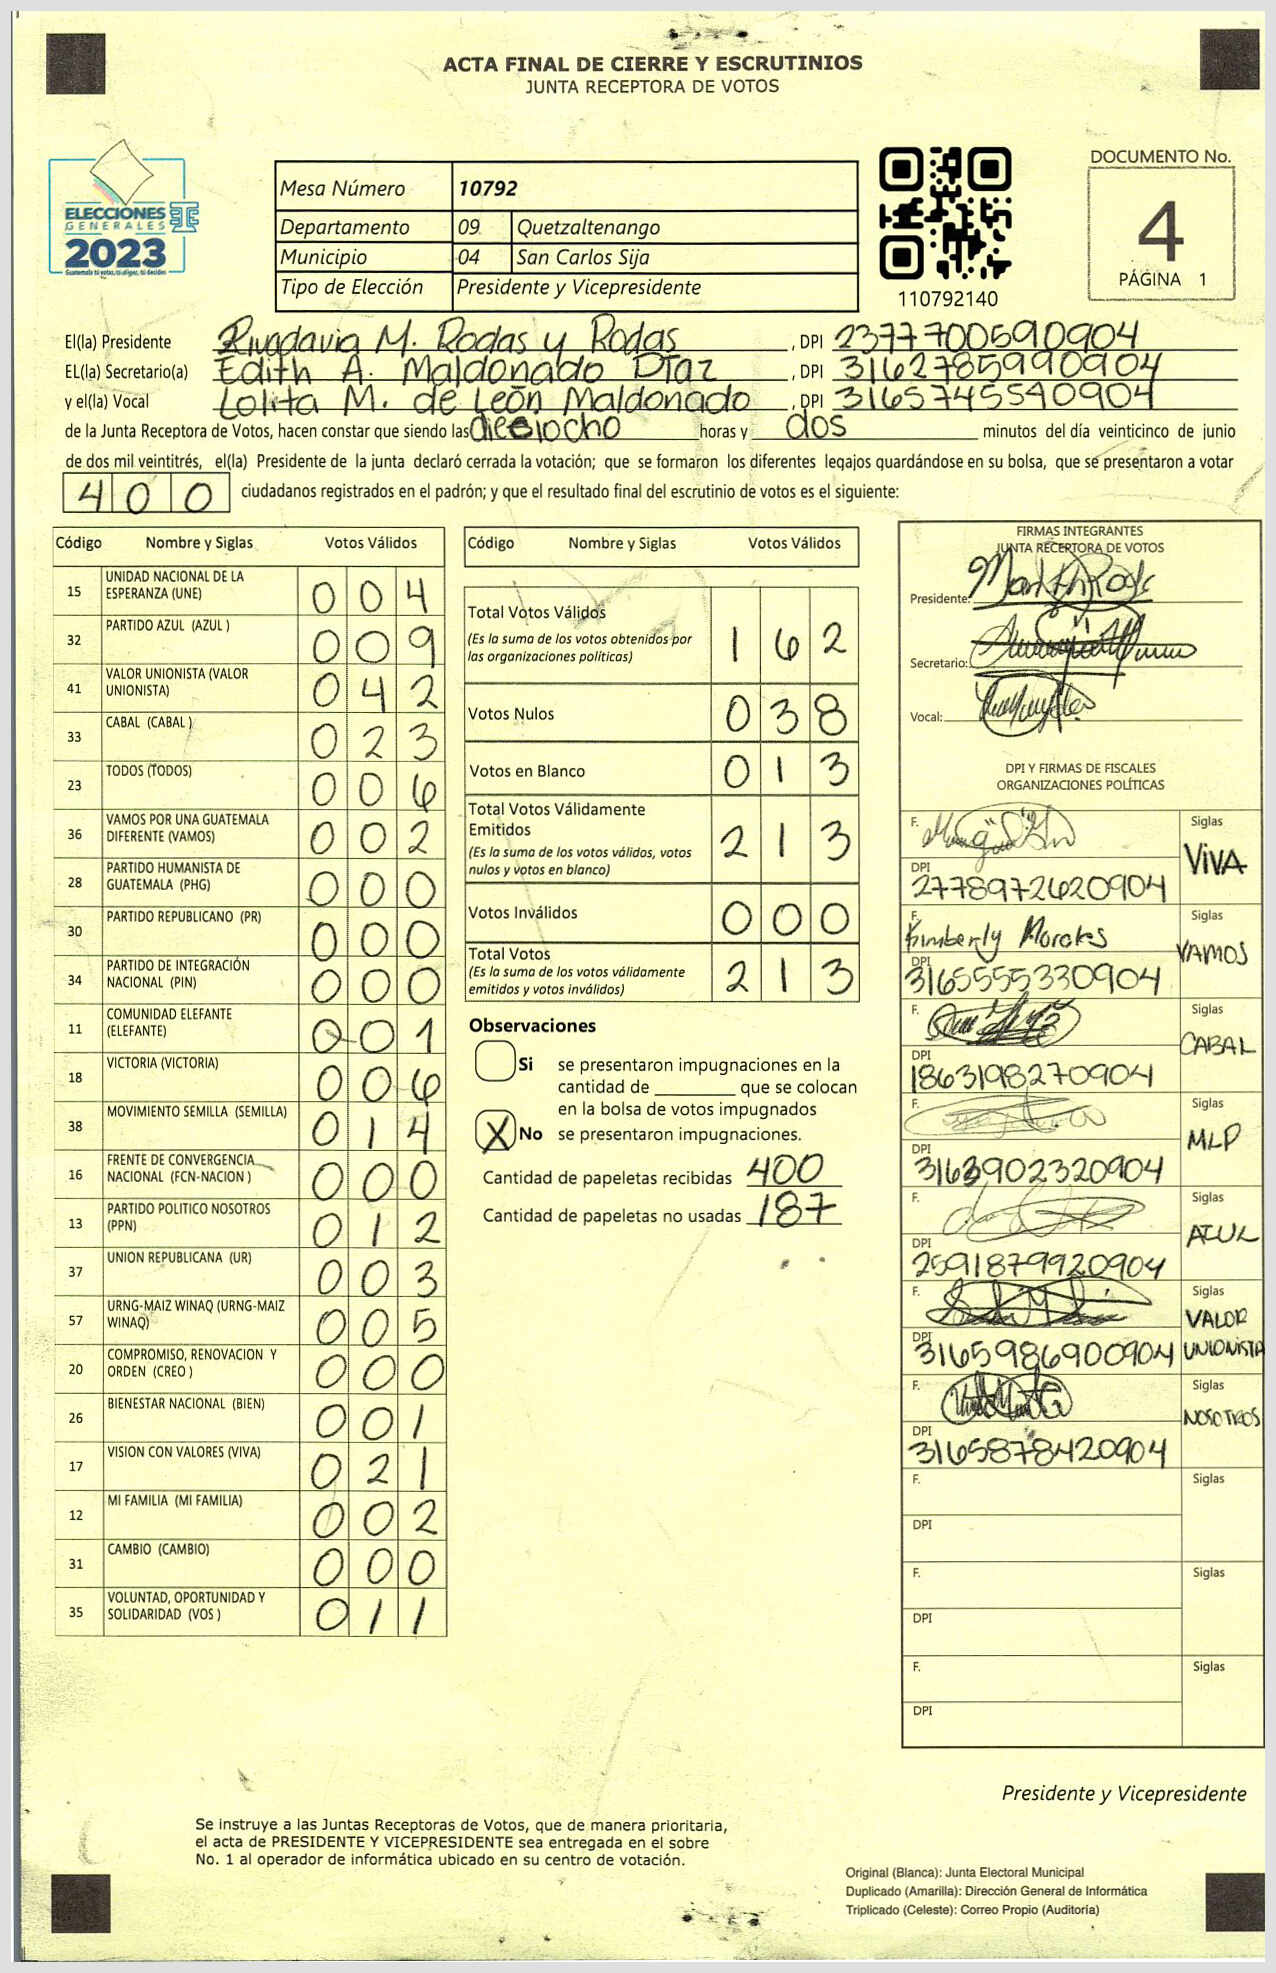 ACTA FINAL DE CIERRE Y ESCRUTINIOS
JUNTA RECEPTORA DE VOTOS
ELECCIONES
GENERALES
2023
Guatemala tú votas, tú eliges, tú decides
Mesa Número 10792
Departamento 09 Quetzaltenango
Municipio 04 San Carlos Sija
Tipo de Elección Presidente y Vicepresidente
110792140
DOCUMENTO No.
4
PÁGINA 1
El(la) Presidente Rivadavia M. Rodas y Rodas, DPI 2377700590904
EL(la) Secretario(a) Edith A. Maldonado Díaz, DPI 3162785990904
y el(la) Vocal Lolita M. de León Maldonado, DPI 3165745540904
de la Junta Receptora de Votos, hacen constar que siendo las dieciocho horas y dos minutos del día veinticinco de junio
de dos mil veintitrés, el(la) Presidente de la junta declaró cerrada la votación; que se formaron los diferentes legajos guardándose en su bolsa, que se presentaron a votar
400 ciudadanos registrados en el padrón; y que el resultado final del escrutinio de votos es el siguiente:
Código Nombre y Siglas Votos Válidos
15 UNIDAD NACIONAL DE LA ESPERANZA (UNE) 004
32 PARTIDO AZUL (AZUL ) 009
41 VALOR UNIONISTA (VALOR UNIONISTA) 042
33 CABAL (CABAL ) 023
23 TODOS (TODOS) 006
36 VAMOS POR UNA GUATEMALA DIFERENTE (VAMOS) 002
28 PARTIDO HUMANISTA DE GUATEMALA (PHG) 000
30 PARTIDO REPUBLICANO (PR) 000
34 PARTIDO DE INTEGRACIÓN NACIONAL (PIN) 000
11 COMUNIDAD ELEFANTE (ELEFANTE) 001
18 VICTORIA (VICTORIA) 006
38 MOVIMIENTO SEMILLA (SEMILLA) 014
16 FRENTE DE CONVERGENCIA NACIONAL (FCN-NACION ) 000
13 PARTIDO POLITICO NOSOTROS (PPN) 012
37 UNION REPUBLICANA (UR) 003
57 URNG-MAIZ WINAQ (URNG-MAIZ WINAQ) 005
20 COMPROMISO, RENOVACION Y ORDEN (CREO ) 000
26 BIENESTAR NACIONAL (BIEN) 001
17 VISION CON VALORES (VIVA) 021
12 MI FAMILIA (MI FAMILIA) 002
31 CAMBIO (CAMBIO) 000
35 VOLUNTAD, OPORTUNIDAD Y SOLIDARIDAD (VOS ) 011
Código Nombre y Siglas Votos Válidos
Total Votos Válidos 162
(Es la suma de los votos obtenidos por
las organizaciones políticas)
Votos Nulos 038
Votos en Blanco 013
Total Votos Válidamente
Emitidos 213
(Es la suma de los votos válidos, votos
nulos y votos en blanco)
Votos Inválidos 000
Total Votos 213
(Es la suma de los votos válidamente
emitidos y votos inválidos)
Observaciones
Si se presentaron impugnaciones en la
cantidad de ________ que se colocan
en la bolsa de votos impugnados
X No se presentaron impugnaciones.
Cantidad de papeletas recibidas 400
Cantidad de papeletas no usadas 187
FIRMAS INTEGRANTES
JUNTA RECEPTORA DE VOTOS
Presidente:
Secretario:
Vocal:
DPI Y FIRMAS DE FISCALES
ORGANIZACIONES POLÍTICAS
F. Siglas
VIVA
DPI
2778972620904
F. Kimberly Morales Siglas
VAMOS
DPI
3165555330904
F. Siglas
CABAL
DPI
1863198270904
F. Siglas
MLP
DPI
3163902320904
F. Siglas
AZUL
DPI
2591879920904
F. Siglas
VALOR
UNIONISTA
DPI
3165986900904
F. Siglas
NOSOTROS
DPI
3165878420904
F. Siglas
DPI
F. Siglas
DPI
F. Siglas
DPI
Presidente y Vicepresidente
Se instruye a las Juntas Receptoras de Votos, que de manera prioritaria,
el acta de PRESIDENTE Y VICEPRESIDENTE sea entregada en el sobre
No. 1 al operador de informática ubicado en su centro de votación.
Original (Blanca): Junta Electoral Municipal
Duplicado (Amarilla): Dirección General de Informática
Triplicado (Celeste): Correo Propio (Auditoría)